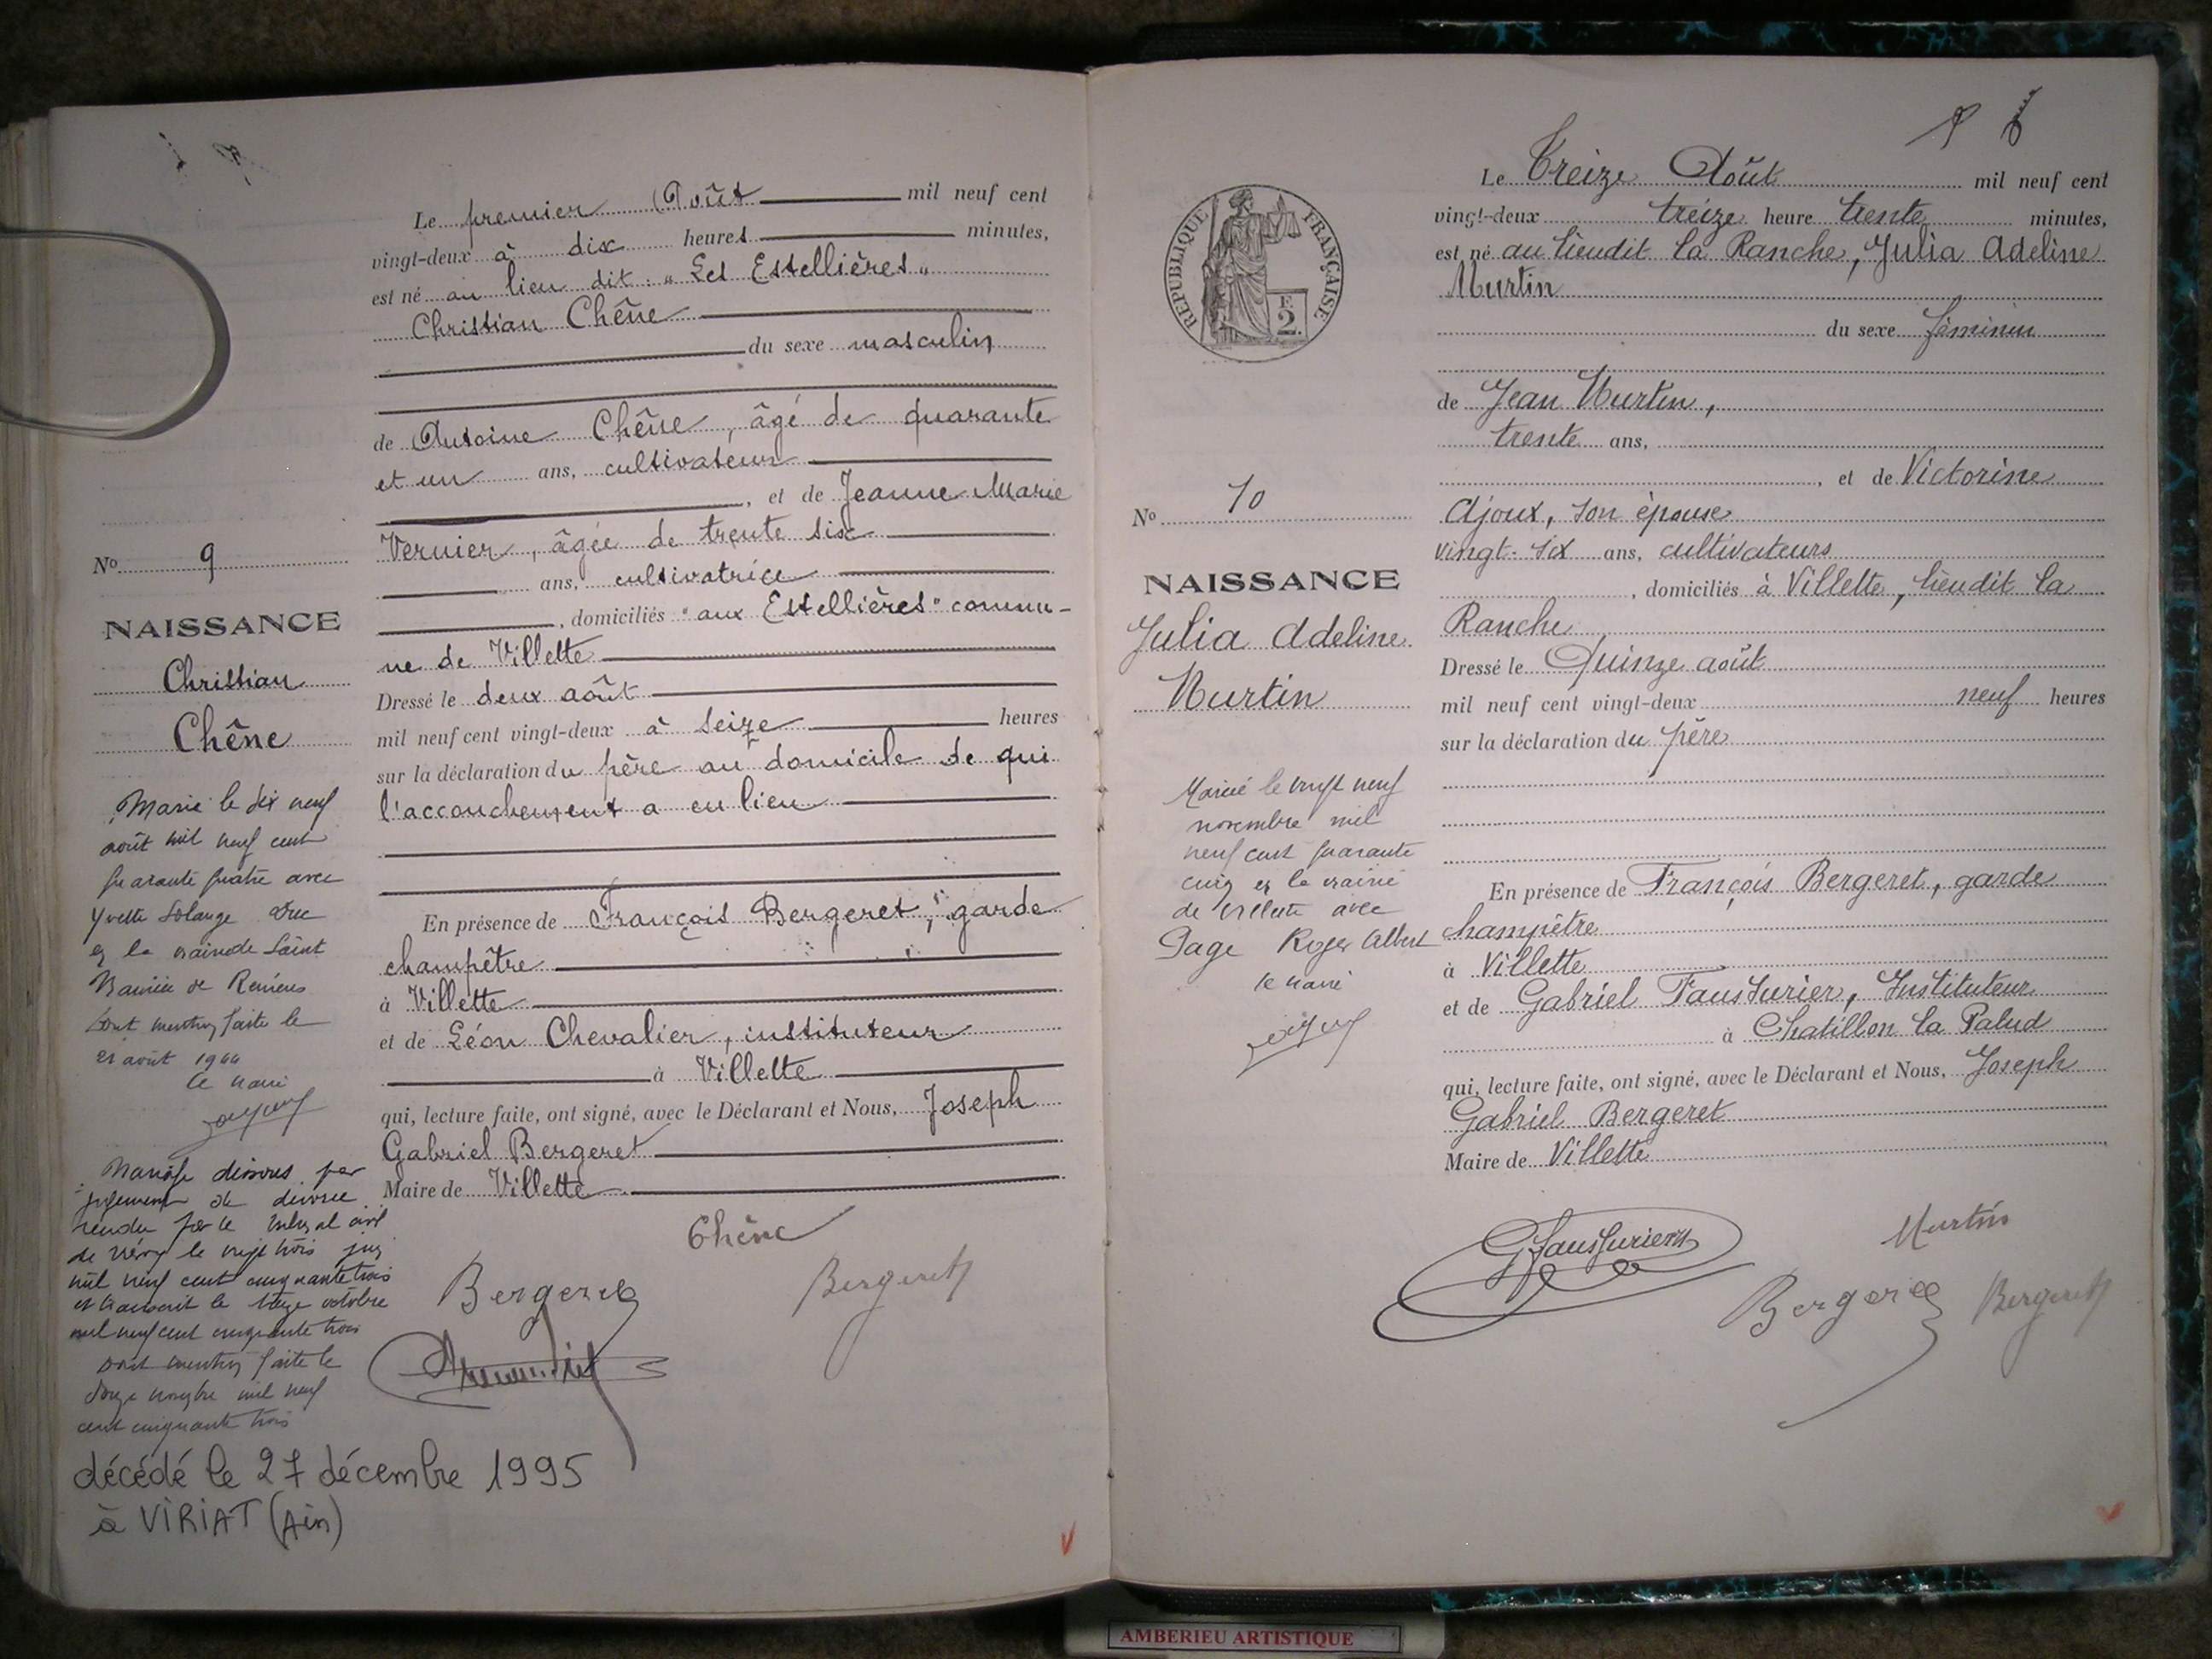 Le premier Août mil neuf cent
vingt-deux à dix heures minutes,
est né au lieu dit : "Les Estellières"
Christian Chêne
du sexe masculin
de Antoine Chêne, âgé de quarante
et un ans, cultivateur
, et de Jeanne Marie
Vernier, âgée de trente six
ans, cultivatrice
, domiciliés "aux Estellières" commu-
ne de Villette
Dressé le deux août
mil neuf cent vingt-deux à seize heures
sur la déclaration du père au domicile de qui
l'accouchement a eu lieu
En présence de François Bergeret, garde
champêtre
à Villette
et de Léon Chevalier, instituteur
à Villette
qui, lecture faite, ont signé, avec le Déclarant et Nous, Joseph
Gabriel Bergeret
Maire de Villette
Chêne
Bergeret
Bergeret
No 9
NAISSANCE
Christian
Chêne
Marié le dix neuf
août mil neuf cent
quarante quatre avec
Yvette Solange
es la mairie de Saint
Maurice de Remens
dont mention faite le
21 août 1944
le maire
Mariage dissous par
jugement de divorce
rendu par le tribunal civil
de le vingt trois juin
mil neuf cent cinquante trois
et transcrit le octobre
mil neuf cent cinquante trois
dont mention faite le
douze novembre mil neuf
cent cinquante trois
décédé le 27 décembre 1995
à VIRIAT (Ain)
RÉPUBLIQUE FRANÇAISE
F.
2.
Le Treize Août mil neuf cent
vingt-deux treize heure trente minutes,
est né au lieudit la Ranche, Julia Adeline
Murtin
du sexe féminin
de Jean Murtin,
trente ans,
, et de Victorine
Ajoux, son épouse
vingt-six ans, cultivateurs
, domiciliés à Villette, lieudit la
Ranche
Dressé le Quinze août
mil neuf cent vingt-deux neuf heures
sur la déclaration du père
En présence de François Bergeret, garde
champêtre
à Villette
et de Gabriel Faussurier, Instituteur
à Chatillon la Palud
qui, lecture faite, ont signé, avec le Déclarant et Nous, Joseph
Gabriel Bergeret
Maire de Villette
G Faussurier
Murtin
Bergeret
Bergeret
No 10
NAISSANCE
Julia Adeline
Murtin
Marié le vingt neuf
novembre mil
neuf cent quarante
cinq es la mairie
de Villette avec
Page Roger Albert
le maire
AMBERIEU ARTISTIQUE